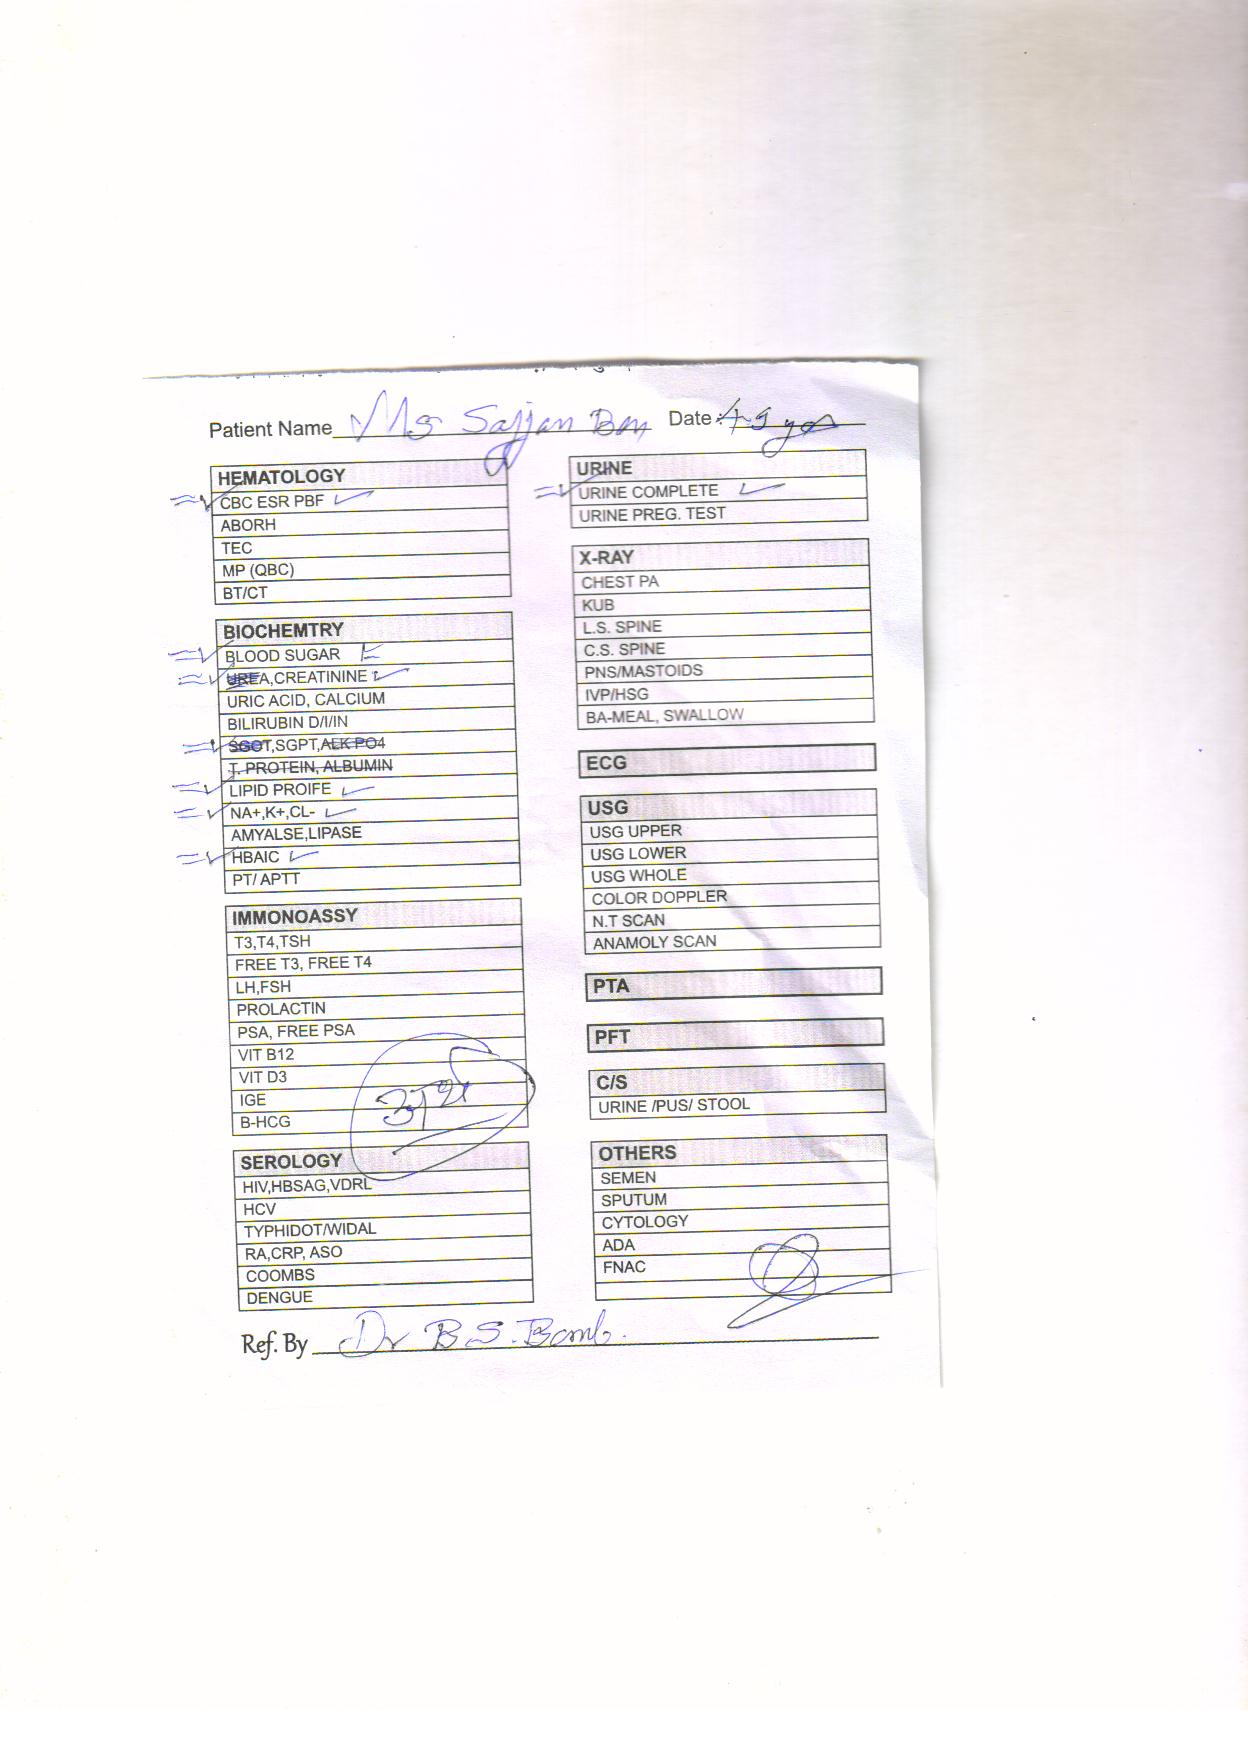 Patient Name Ms Sajjan Date :
HEMATOLOGY
CBC ESR PBF
ABORH
TEC
MP (QBC)
BT/CT
BIOCHEMTRY
BLOOD SUGAR
UREA,CREATININE
URIC ACID, CALCIUM
BILIRUBIN D/I/IN
SGOT,SGPT,ALK PO4
T. PROTEIN, ALBUMIN
LIPID PROIFE
NA+,K+,CL-
AMYALSE,LIPASE
HBAIC
PT/ APTT
IMMONOASSY
T3,T4,TSH
FREE T3, FREE T4
LH,FSH
PROLACTIN
PSA, FREE PSA
VIT B12
VIT D3
IGE
B-HCG
SEROLOGY
HIV,HBSAG,VDRL
HCV
TYPHIDOT/WIDAL
RA,CRP, ASO
COOMBS
DENGUE
URINE
URINE COMPLETE
URINE PREG. TEST
X-RAY
CHEST PA
KUB
L.S. SPINE
C.S. SPINE
PNS/MASTOIDS
IVP/HSG
BA-MEAL, SWALLOW
ECG
USG
USG UPPER
USG LOWER
USG WHOLE
COLOR DOPPLER
N.T SCAN
ANAMOLY SCAN
PTA
PFT
C/S
URINE /PUS/ STOOL
OTHERS
SEMEN
SPUTUM
CYTOLOGY
ADA
FNAC
Ref. By Dr B.S. Bomb.